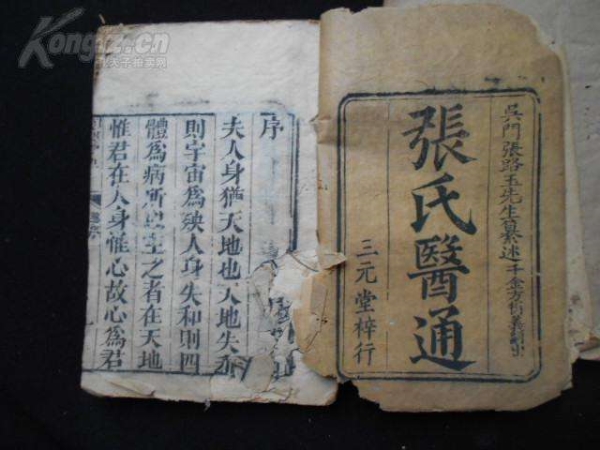 吳門張路玉先生纂述 千金方衍義嗣出
張氏醫通
三元堂梓行
序
夫人身猶天地也天地失
則宇宙為殃人身失和則四
體為病所以主之者在天地
惟君在人身惟心故心為君
Kongfz.cn
孔夫子拍卖网